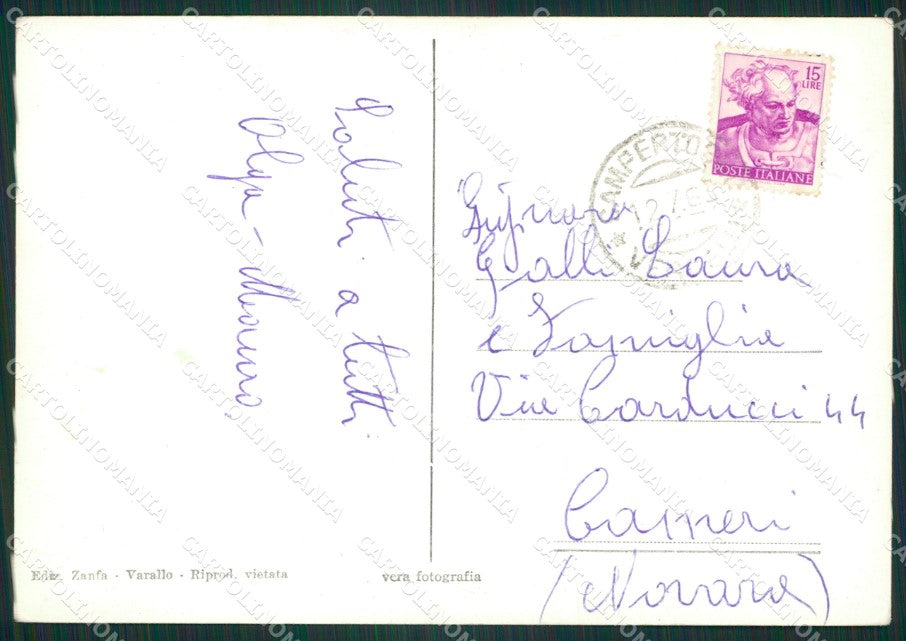 Saluti a tutti
Olga - Mauro
Signora
Galli Laura
e Famiglia
Via Carducci 44
Cameri
(Novara)
15
LIRE
POSTE ITALIANE
CAMPERTO
12.7.6
Ediz. Zanfa - Varallo - Riprod. vietata
vera fotografia
CARTOLINOMANIA